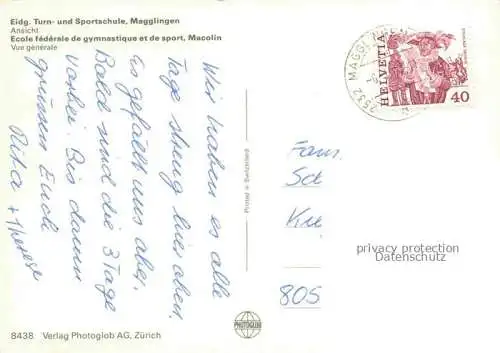 Eidg. Turn- und Sportschule, Magglingen
Ansicht
Ecole fédérale de gymnastique et de sport, Macolin
Vue générale
Wir haben es alle
Tage streng hier oben.
Es gefällt uns aber.
Bald sind die 3 Tage
vorbei. Bis dann
grüssen Euch
Rita + Therese
Printed in Switzerland
PHOTOGLOB
8438 Verlag Photoglob AG, Zürich
2532 MAGGLINGEN
HELVETIA
40
Fam.
Sch
805
privacy protection
Datenschutz